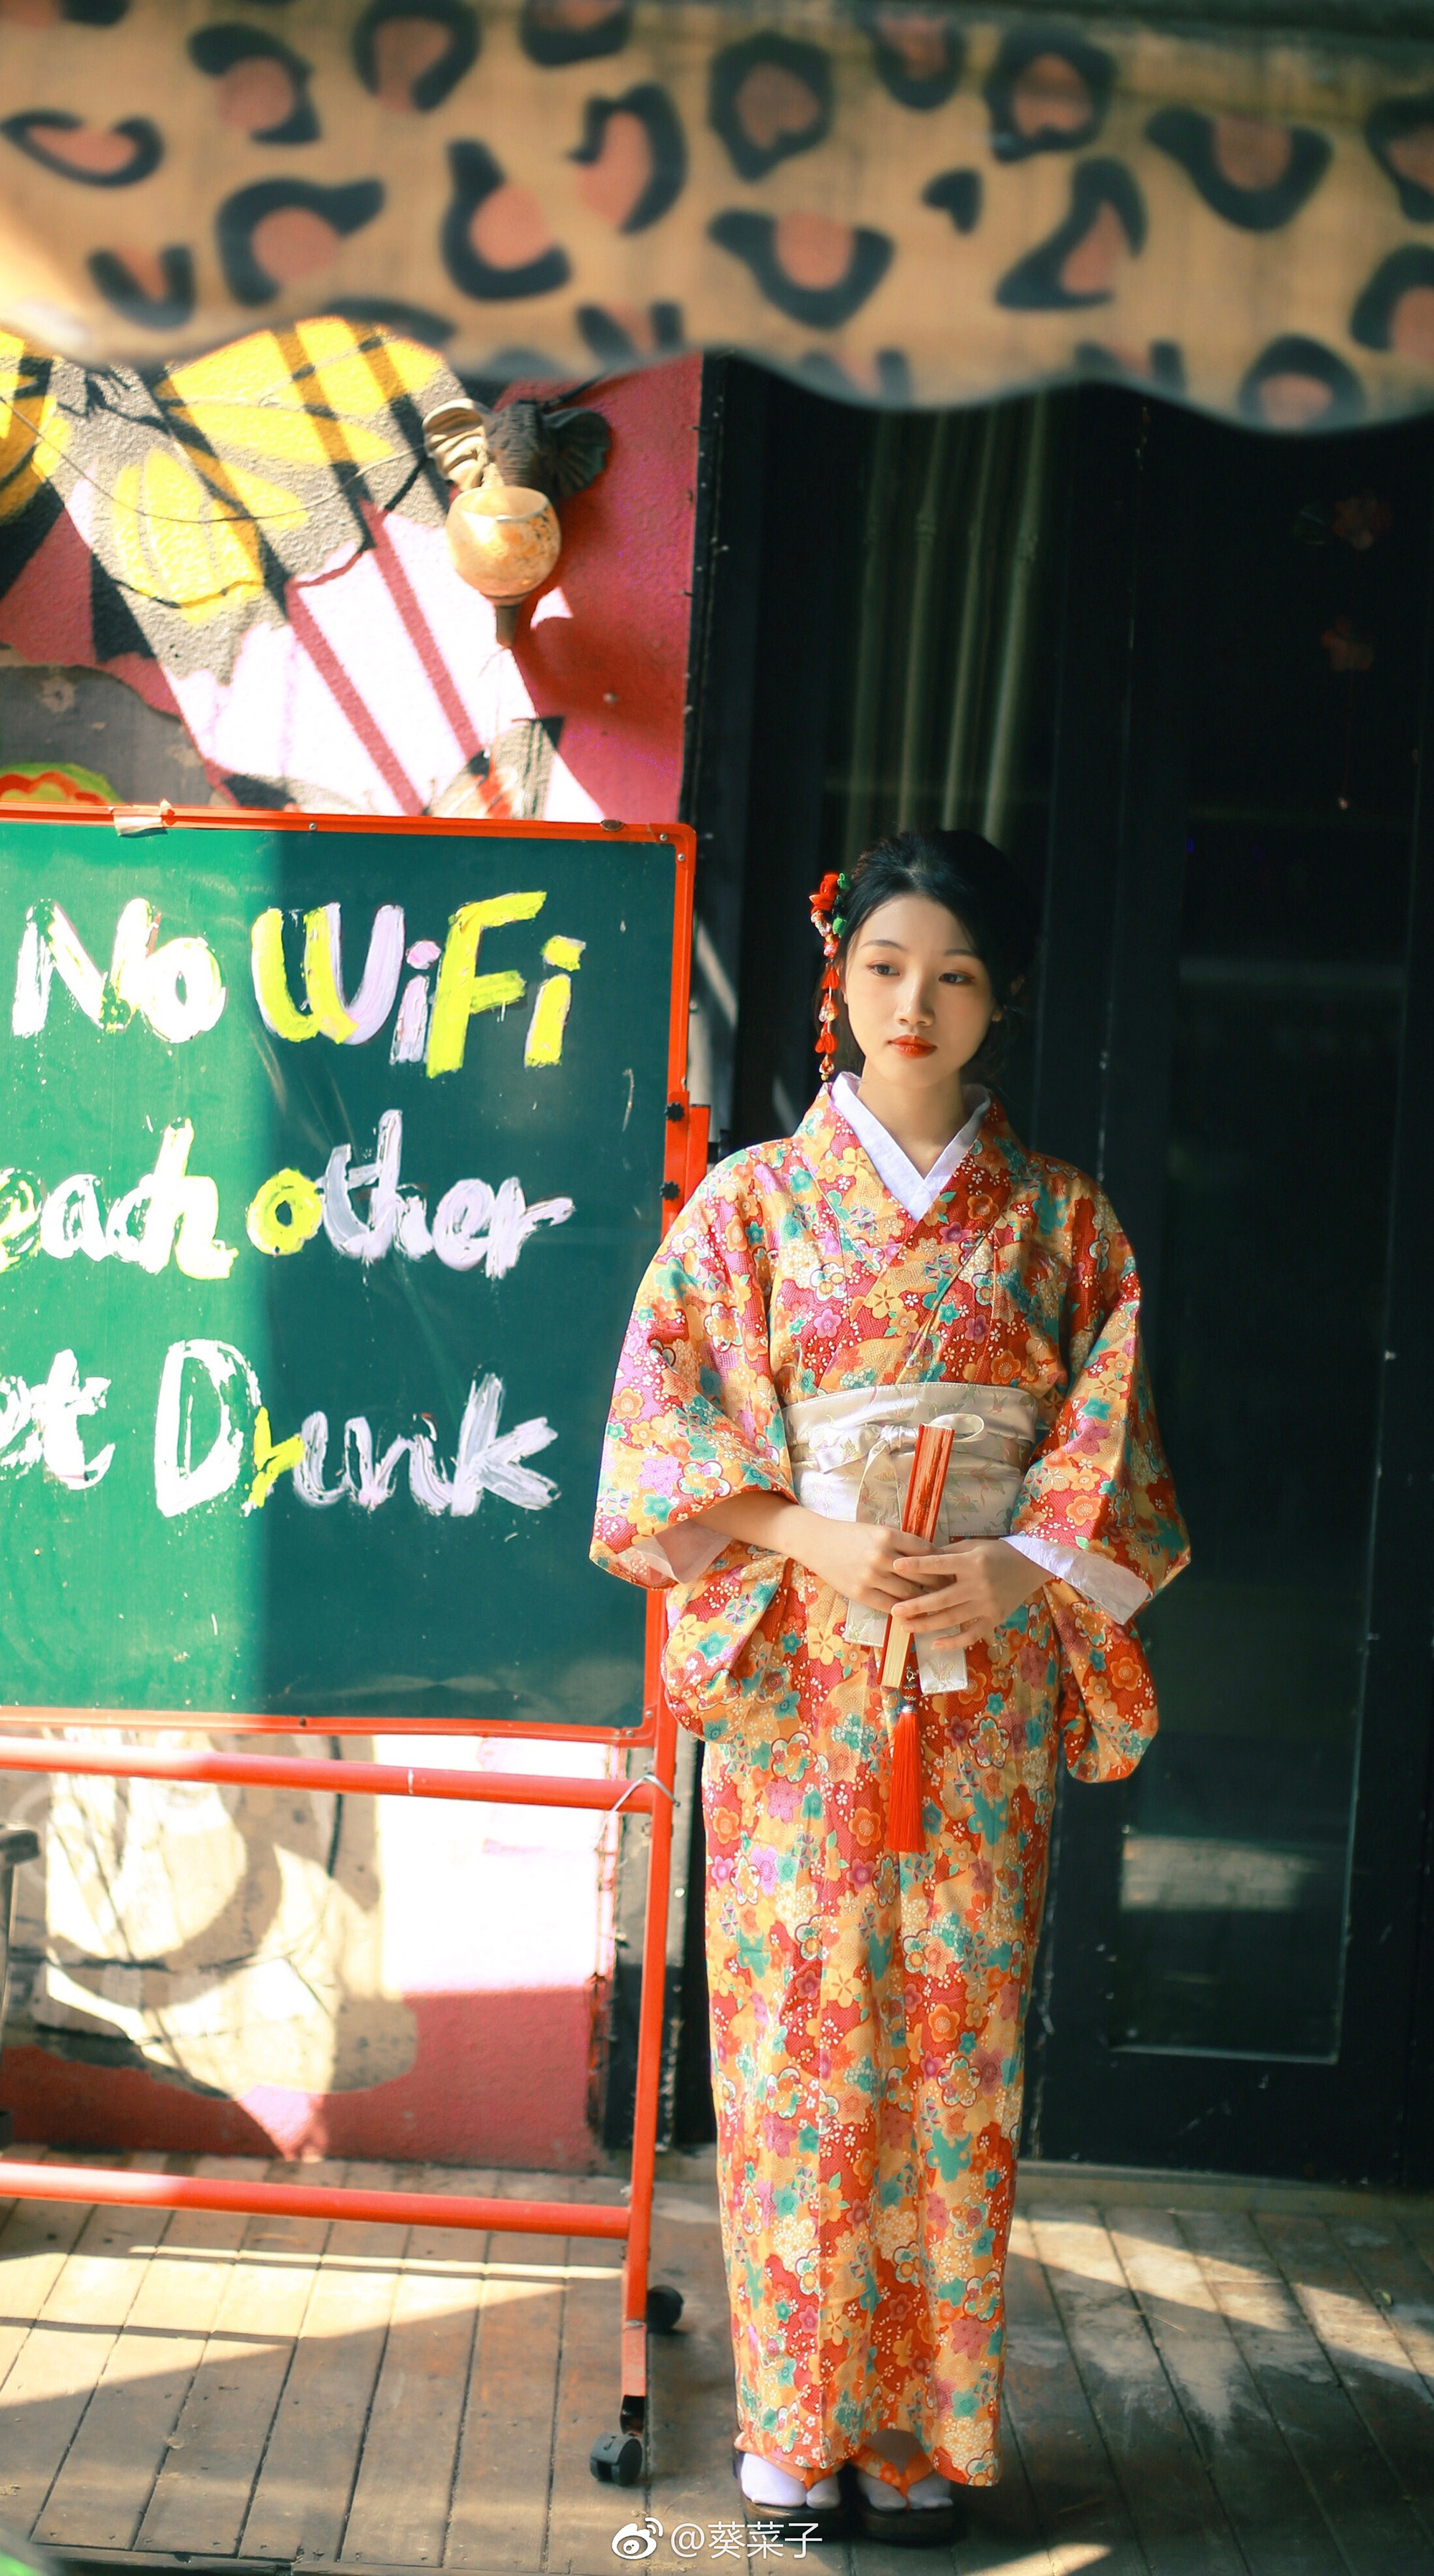 No WiFi
each other
et Drunk
@葵菜子